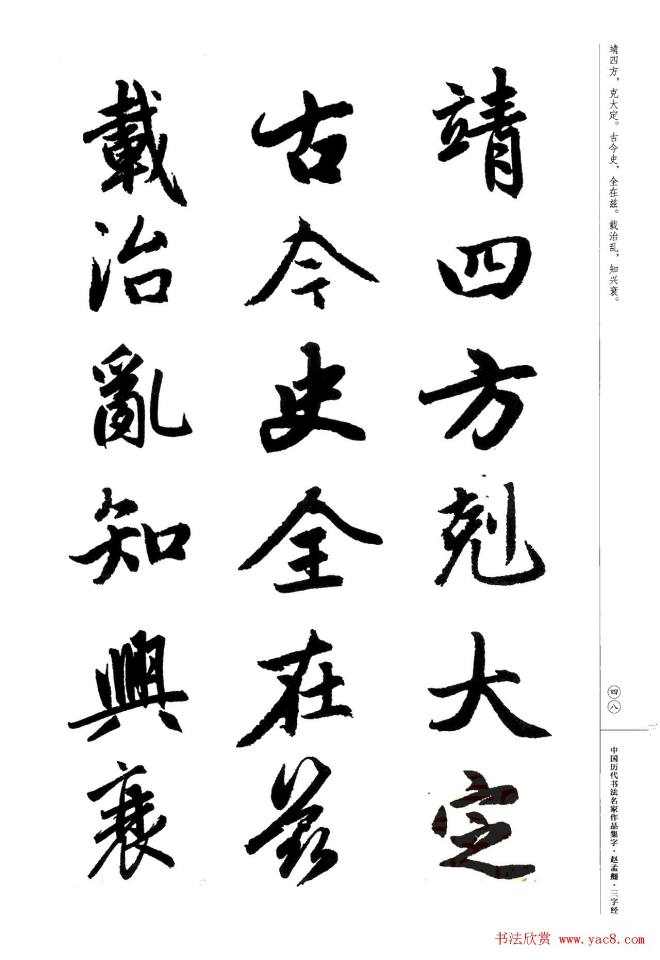 靖四方剋大定
古今史全在兹
載治亂知興衰
靖四方，克大定。古今史，全在兹。载治乱，知兴衰。
四八
中国历代书法名家作品集字·赵孟頫·三字经
书法欣赏 www.yac8.com